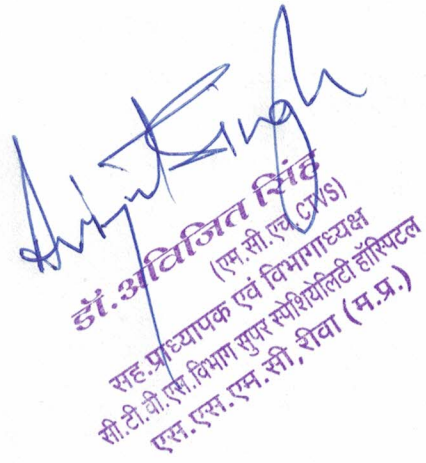 Avijit Singh
डॉ.अविजित सिंह
(एम.सी.एच. CTVS)
सह.प्राध्यापक एवं विभागाध्यक्ष
सी.टी.वी.एस.विभाग सुपर स्पेशियेलिटी हॉस्पिटल
एस.एस.एम.सी, रीवा (म.प्र.)